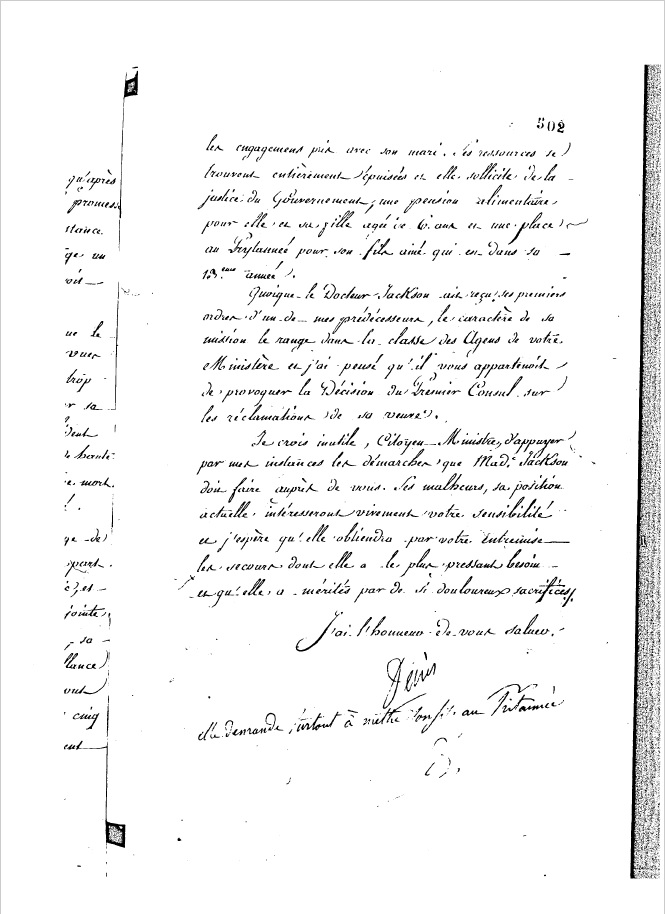 502
les engagemens pris avec son mari. Ses ressources se
trouvent entièrement épuisées et elle sollicite de la
justice du Gouvernement, une pension alimentaire
pour elle et sa fille agée de 6 ans et une place
au Prytannée pour son fils ainé qui est dans sa
13.eme année.
Quoique le Docteur Jackson ait reçu ses premiers
ordres d'un de mes prédécesseurs, le caractère de sa
mission le range dans la classe des Agens de votre
Ministère et j'ai pensé qu'il vous appartenoit
de provoquer la Décision du Premier Consul sur
les réclamations de sa veuve.
Je crois inutile, Citoyen Ministre, d'appuyer
par mes instances les démarches que Mad.e Jackson
doit faire auprès de vous. Ses malheurs, sa position
actuelle intéresseront vivement votre sensibilité
et j'espère qu'elle obtiendra par votre entremise
les secours dont elle a le plus pressant besoin
et qu'elle a mérités par de si douloureux sacrifices.
J'ai l'honneur de vous saluer.
elle demande surtout à mettre son fils au Pritannée
D.
qu'après
promess
stance
ge un
vit
ue le
vues
trop
er sa
dent
haute
e mort.
!.
ge de
part.
et
jointe
, sa
llance
ont
cinq
ent